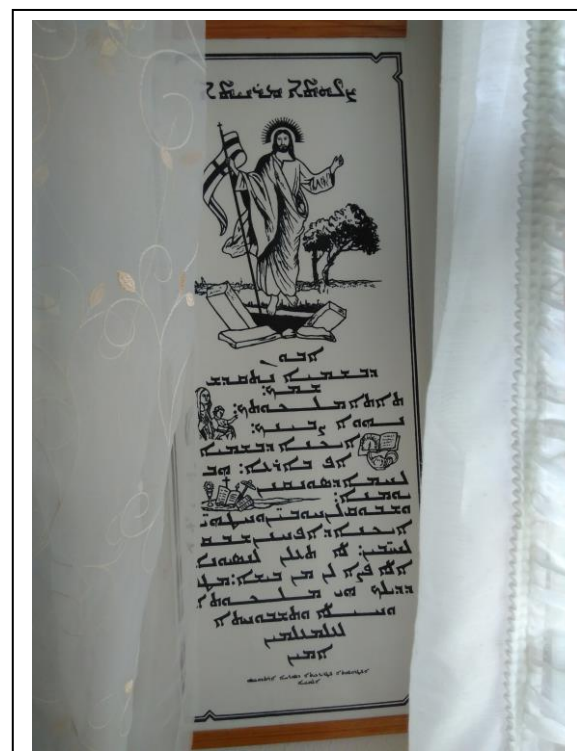 ܨܠܘܬܐ ܡܪܢܝܬܐ
ܐܒܘܢ
ܕܒܫܡܝܐ ܢܬܩܕܫ
ܫܡܟ:
ܬܐܬܐ ܡܠܟܘܬܟ:
ܢܗܘܐ ܨܒܝܢܟ:
ܐܝܟܢܐ ܕܒܫܡܝܐ
ܐܦ ܒܐܪܥܐ: ܗܒ
ܠܢ ܠܚܡܐ ܕܣܘܢܩܢܢ
ܝܘܡܢܐ:
ܘܫܒܘܩ ܠܢ ܚܘܒܝܢ ܘܚܛܗܝܢ:
ܐܝܟܢܐ ܕܐܦ ܚܢܢ ܫܒܩܢ
ܠܚܝܒܝܢ: ܠܐ ܬܥܠܢ ܠܢܣܝܘܢܐ
ܐܠܐ ܦܨܐ ܠܢ ܡܢ ܒܝܫܐ: ܡܛܠ
ܕܕܝܠܟ ܗܝ ܡܠܟܘܬܐ
ܘܚܝܠܐ ܘܬܫܒܘܚܬܐ
ܠܥܠܡܥܠܡܝܢ
ܐܡܝܢ